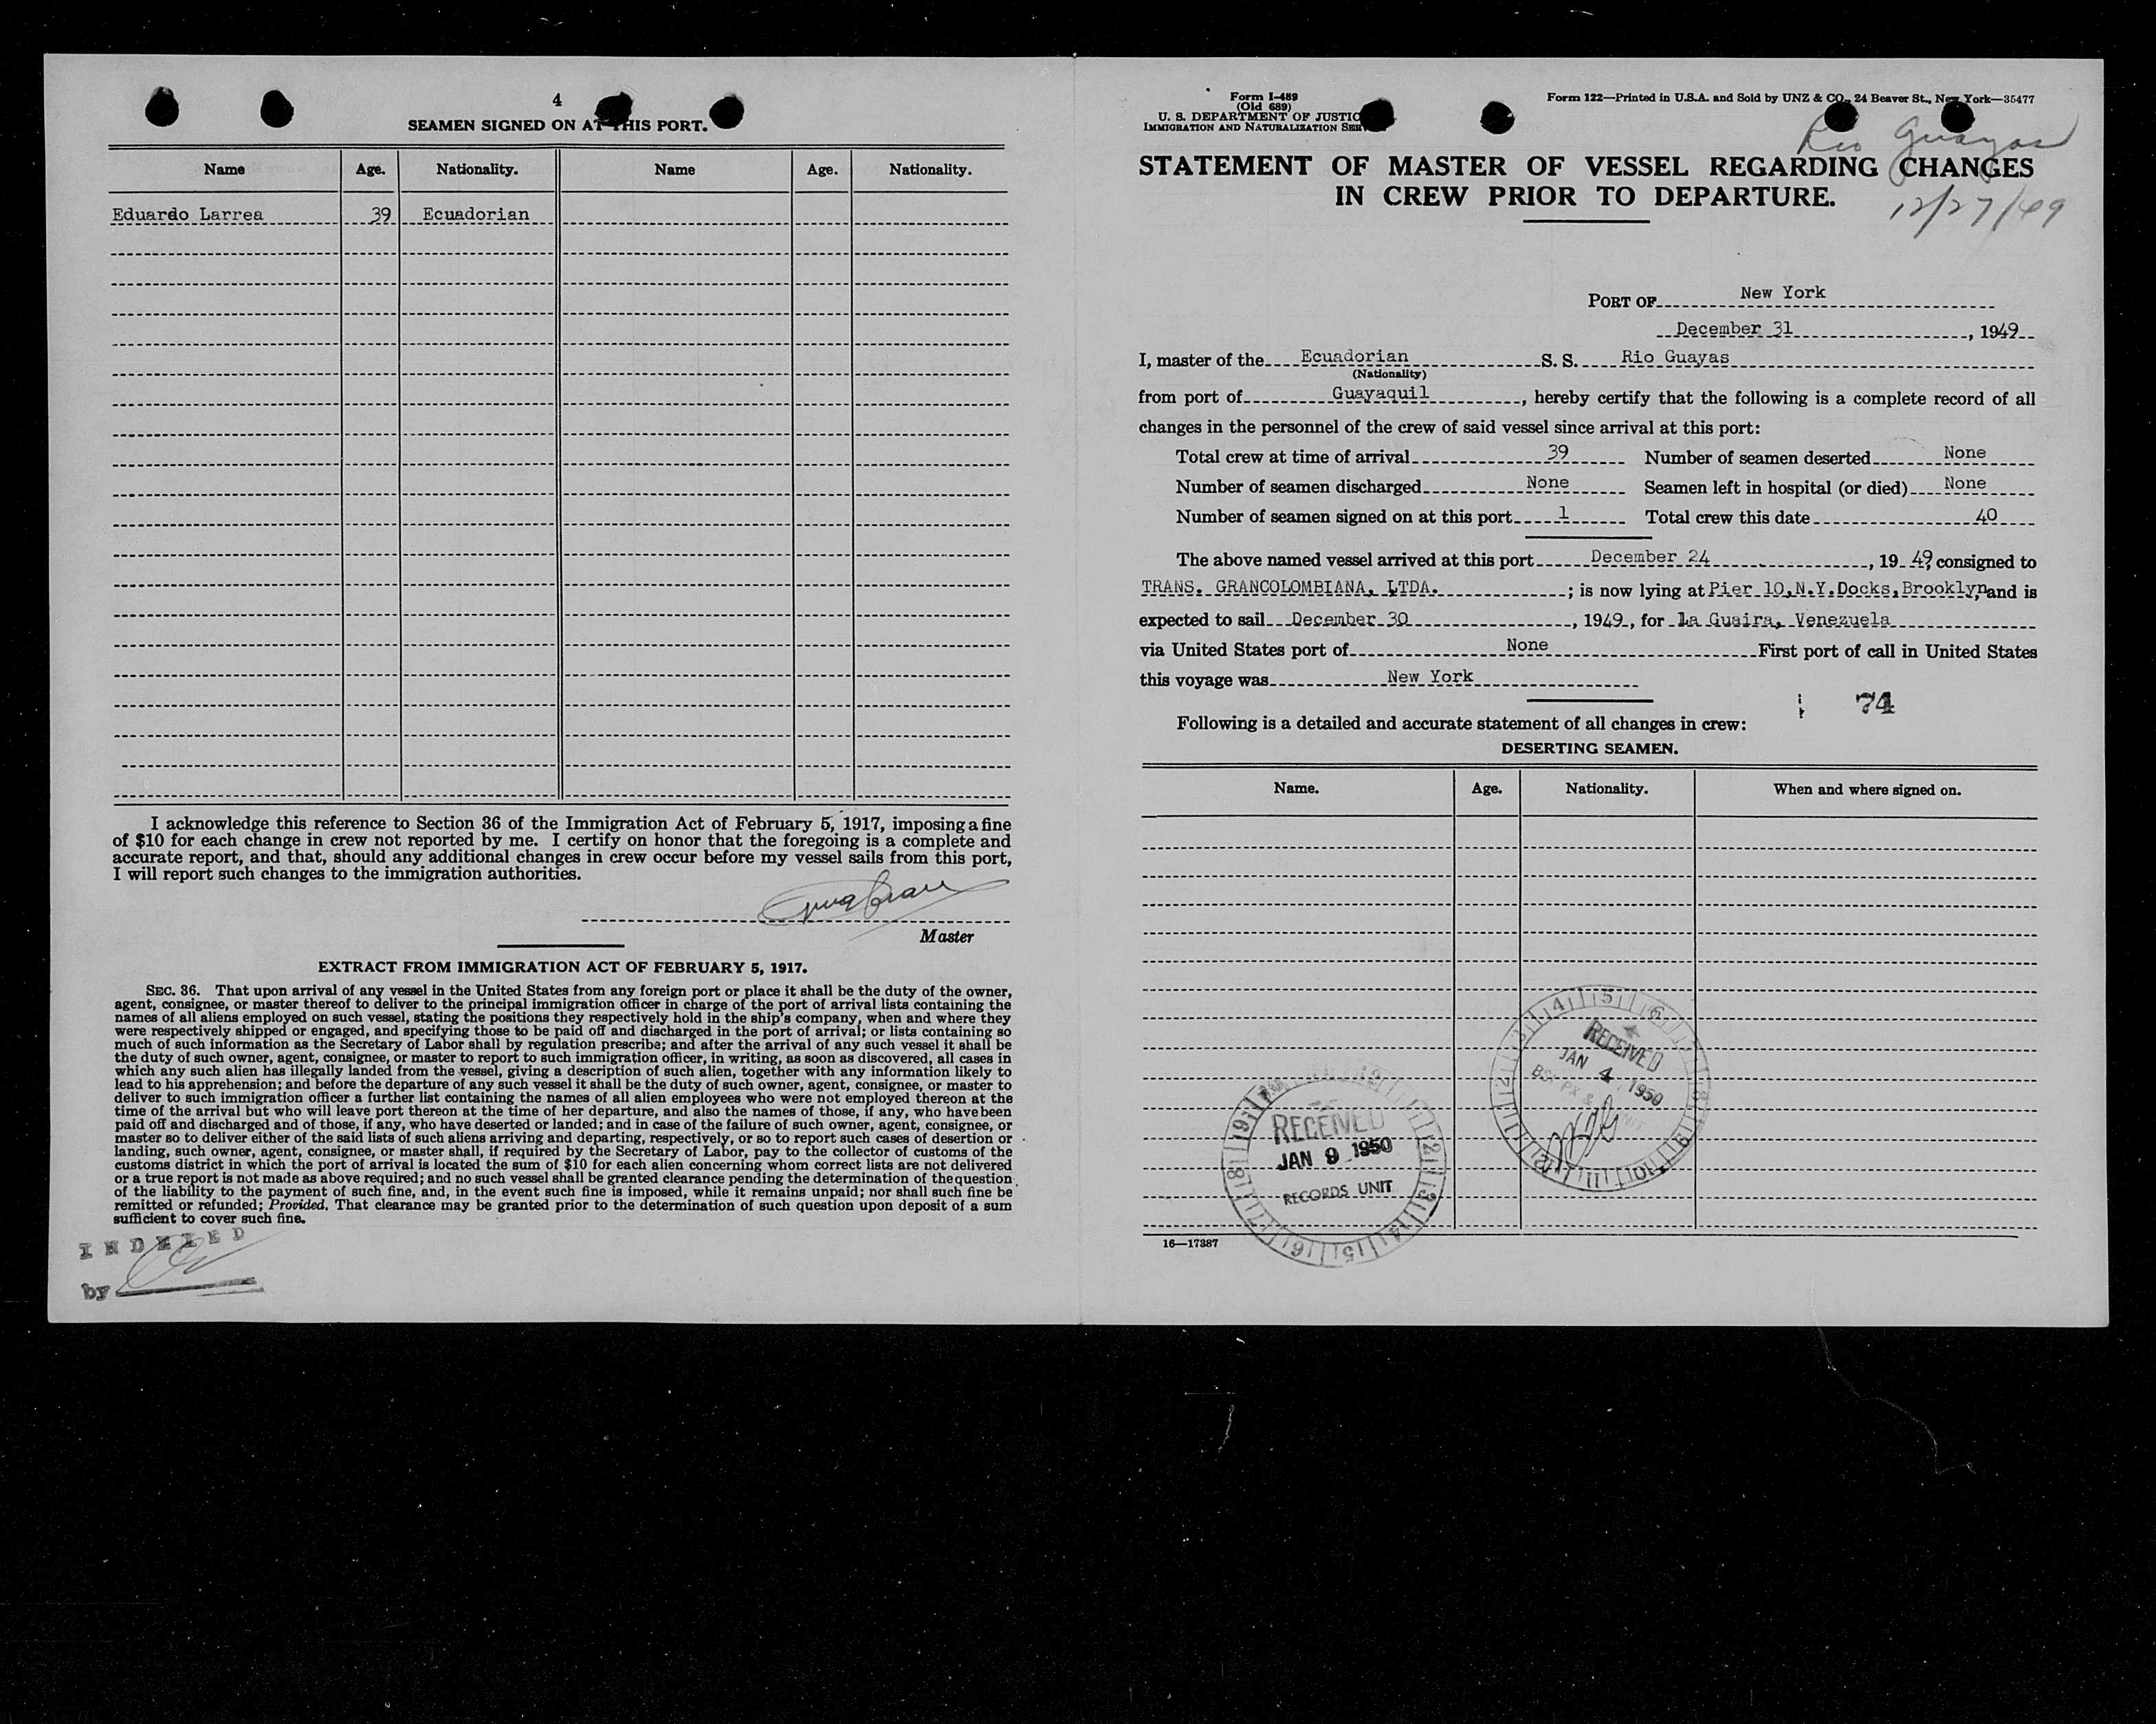 4
SEAMEN SIGNED ON AT THIS PORT.
Name Age. Nationality. Name Age. Nationality.
Eduardo Larrea 39 Ecuadorian
I acknowledge this reference to Section 36 of the Immigration Act of February 5, 1917, imposing a fine
of $10 for each change in crew not reported by me. I certify on honor that the foregoing is a complete and
accurate report, and that, should any additional changes in crew occur before my vessel sails from this port,
I will report such changes to the immigration authorities.
Master
EXTRACT FROM IMMIGRATION ACT OF FEBRUARY 5, 1917.
SEC. 36. That upon arrival of any vessel in the United States from any foreign port or place it shall be the duty of the owner,
agent, consignee, or master thereof to deliver to the principal immigration officer in charge of the port of arrival lists containing the
names of all aliens employed on such vessel, stating the positions they respectively hold in the ship's company, when and where they
were respectively shipped or engaged, and specifying those to be paid off and discharged in the port of arrival; or lists containing so
much of such information as the Secretary of Labor shall by regulation prescribe; and after the arrival of any such vessel it shall be
the duty of such owner, agent, consignee, or master to report to such immigration officer, in writing, as soon as discovered, all cases in
which any such alien has illegally landed from the vessel, giving a description of such alien, together with any information likely to
lead to his apprehension; and before the departure of any such vessel it shall be the duty of such owner, agent, consignee, or master to
deliver to such immigration officer a further list containing the names of all alien employees who were not employed thereon at the
time of the arrival but who will leave port thereon at the time of her departure, and also the names of those, if any, who have been
paid off and discharged and of those, if any, who have deserted or landed; and in case of the failure of such owner, agent, consignee, or
master so to deliver either of the said lists of such aliens arriving and departing, respectively, or so to report such cases of desertion or
landing, such owner, agent, consignee, or master shall, if required by the Secretary of Labor, pay to the collector of customs of the
customs district in which the port of arrival is located the sum of $10 for each alien concerning whom correct lists are not delivered
or a true report is not made as above required; and no such vessel shall be granted clearance pending the determination of the question
of the liability to the payment of such fine, and, in the event such fine is imposed, while it remains unpaid; nor shall such fine be
remitted or refunded; Provided, That clearance may be granted prior to the determination of such question upon deposit of a sum
sufficient to cover such fine.
INDEXED
by
Form I-489
(Old 689)
U. S. DEPARTMENT OF JUSTIC
IMMIGRATION AND NATURALIZATION SER
Form 122—Printed in U.S.A. and Sold by UNZ & CO., 24 Beaver St., New York—35477
Rio Guayas
STATEMENT OF MASTER OF VESSEL REGARDING CHANGES
IN CREW PRIOR TO DEPARTURE.
12/27/49
PORT OF New York
December 31, 1949
I, master of the Ecuadorian S. S. Rio Guayas
(Nationality)
from port of Guayaquil, hereby certify that the following is a complete record of all
changes in the personnel of the crew of said vessel since arrival at this port:
Total crew at time of arrival 39 Number of seamen deserted None
Number of seamen discharged None Seamen left in hospital (or died) None
Number of seamen signed on at this port 1 Total crew this date 40
The above named vessel arrived at this port December 24, 19 49, consigned to
TRANS. GRANCOLOMBIANA, LTDA.; is now lying at Pier 10,N.Y.Docks,Brooklyn, and is
expected to sail December 30, 1949, for La Guaira, Venezuela
via United States port of None First port of call in United States
this voyage was New York
74
Following is a detailed and accurate statement of all changes in crew:
DESERTING SEAMEN.
Name. Age. Nationality. When and where signed on.
RECEIVED
JAN 4 1950
RECEIVED
JAN 9 1950
RECORDS UNIT
16—17387